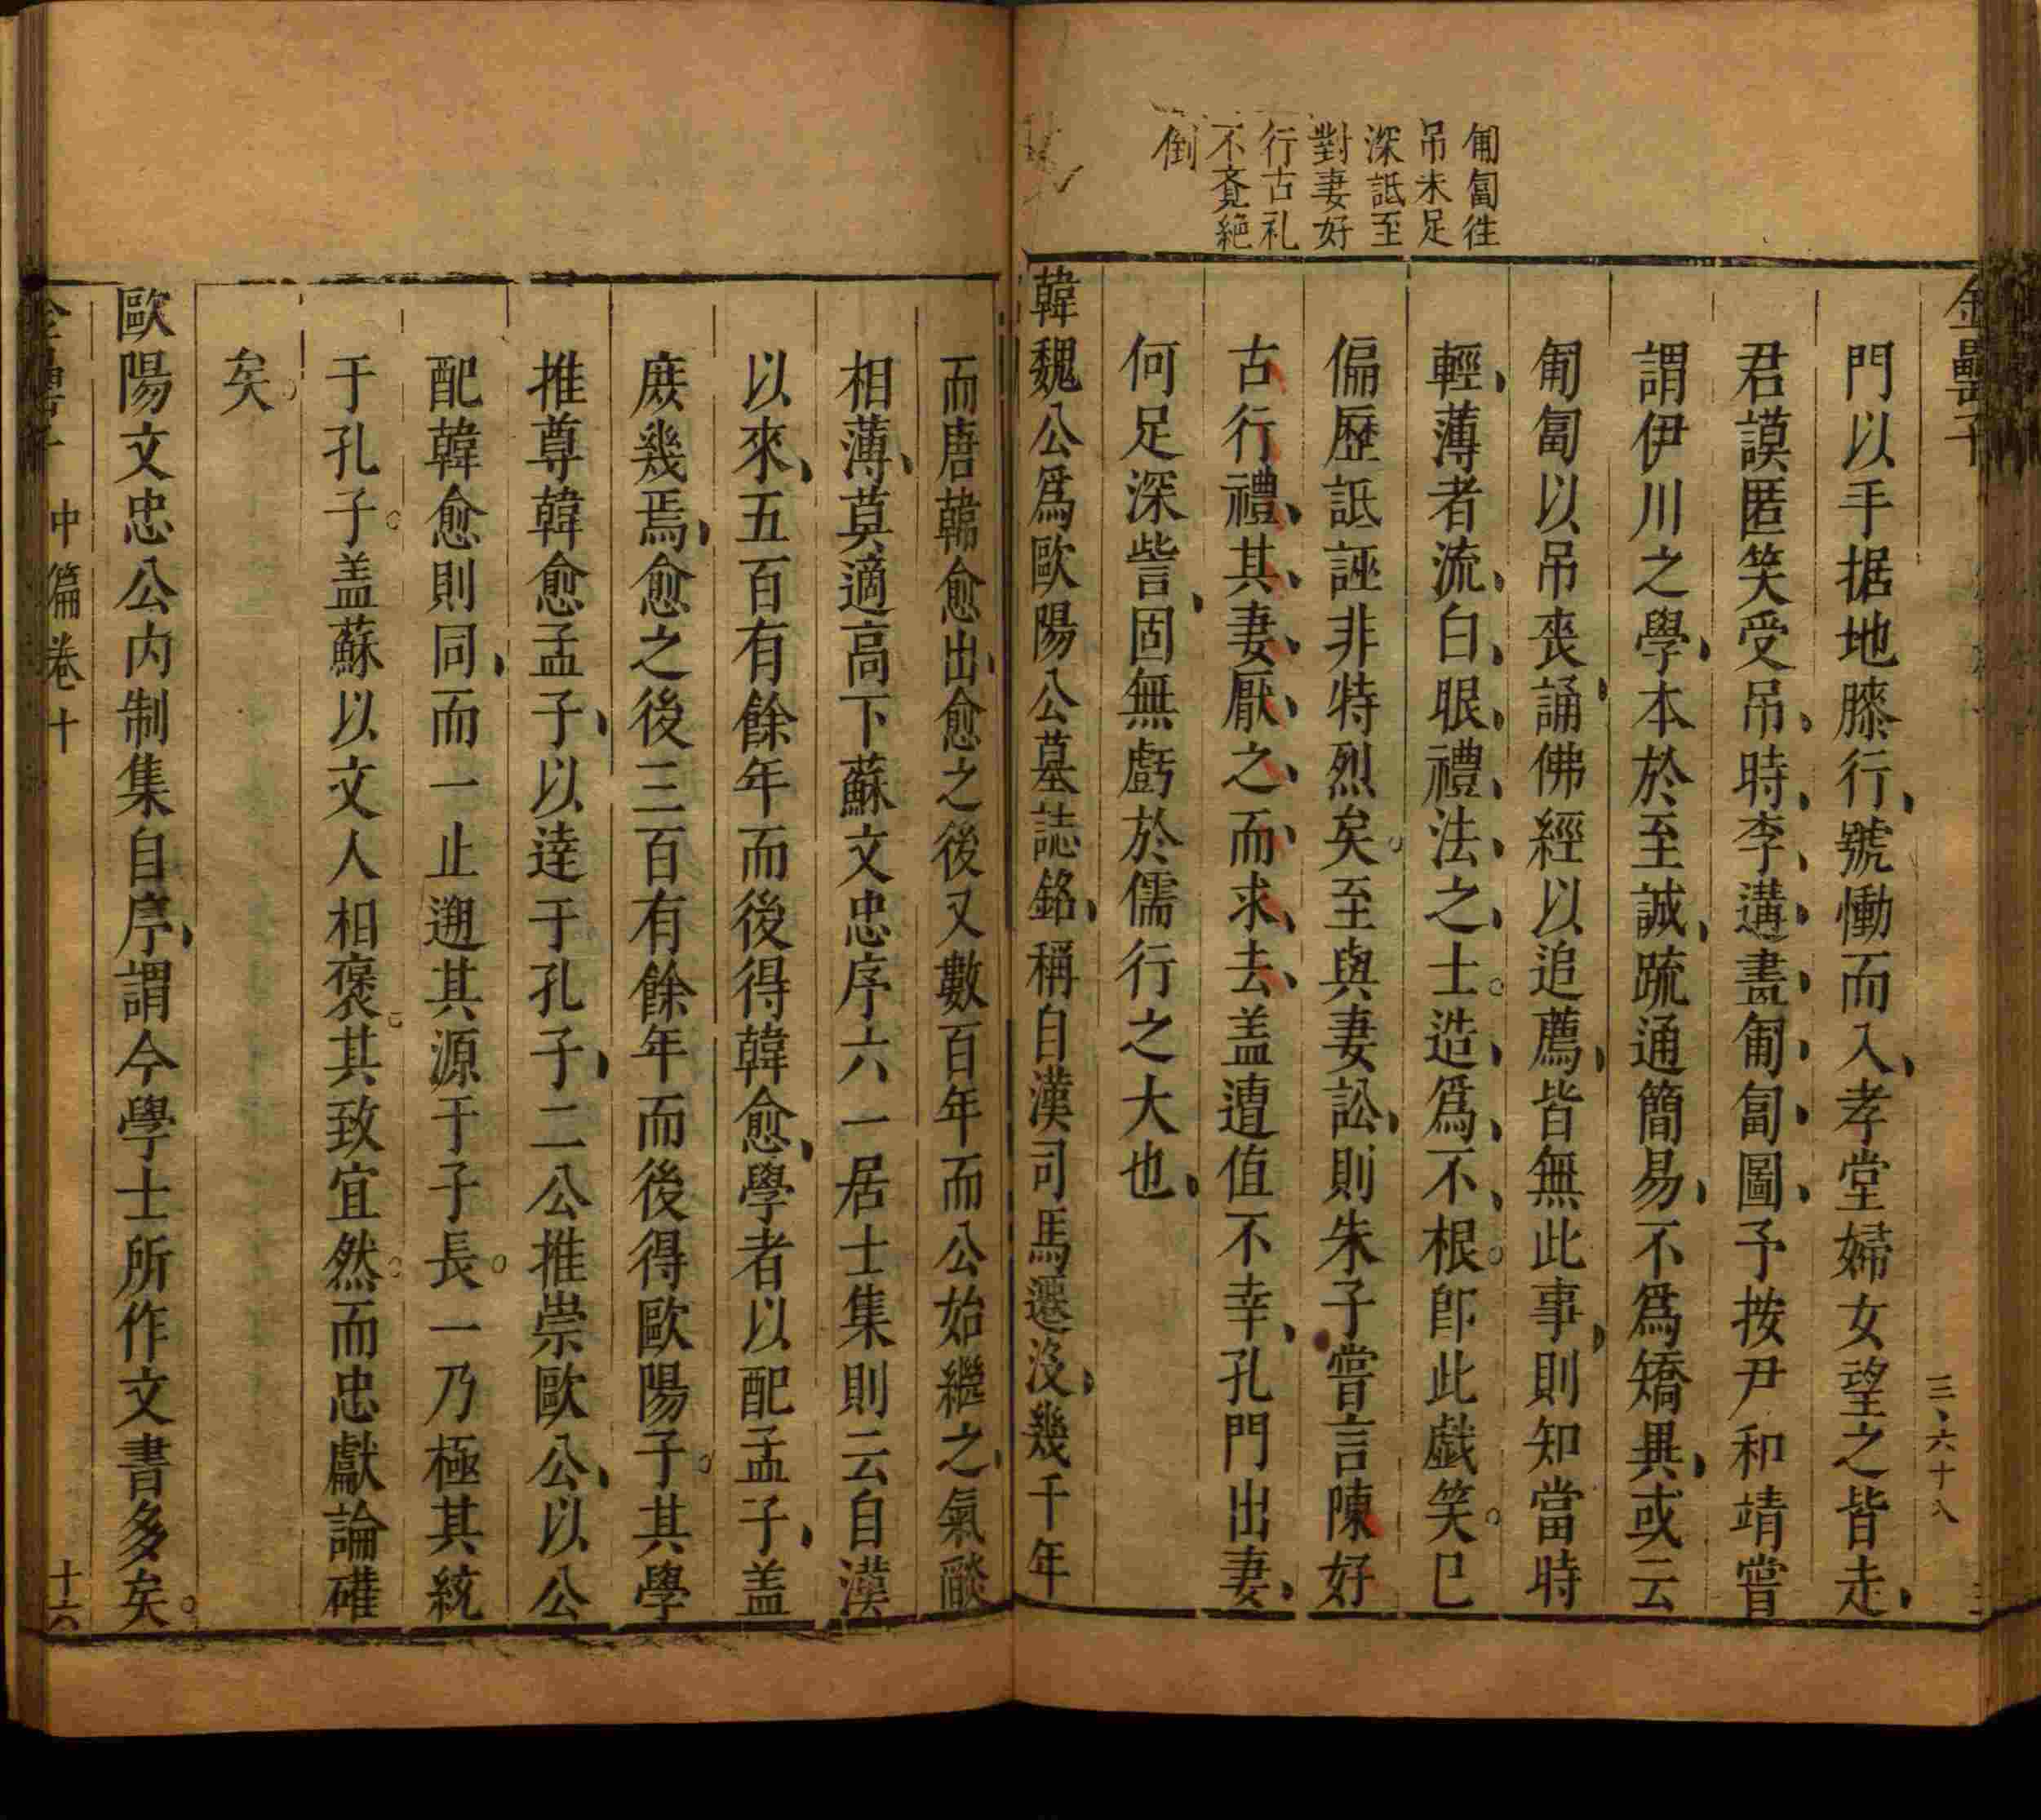 匍匐徃
吊未足
深詆至
對妻好
行古礼
不覔絶
倒
金罍子
三六十八
門以手据地膝行號慟而入孝堂婦女望之皆走
君謨匿笑受吊時李遘畫匍匐圖予按尹和靖嘗
謂伊川之學本於至誠䟽通簡易不爲矯異或云
匍匐以吊丧誦佛經以追薦皆無此事則知當時
輕薄者流白眼禮法之士造爲不根卽此戯笑已
偏歷詆誣非特烈矣至與妻訟則朱子嘗言陳好
古行禮其妻厭之而求去盖遭值不幸孔門出妻
何足深訾固無虧於儒行之大也
韓魏公爲歐陽公墓誌銘稱自漢司馬遷没幾千年
而唐韓愈出愈之後又數百年而公始繼之氣燄
相薄莫適高下蘇文忠序六一居士集則云自漢
以來五百有餘年而後得韓愈學者以配孟子盖
庶幾焉愈之後三百有餘年而後得歐陽子其學
推尊韓愈孟子以達于孔子二公推崇歐公以公
配韓愈則同而一止遡其源于子長一乃極其統
于孔子盖蘇以文人相褒其致宜然而忠獻論礭
矣
歐陽文忠公内制集自序謂今學士所作文書多矣
金罍子 中篇卷十 十六